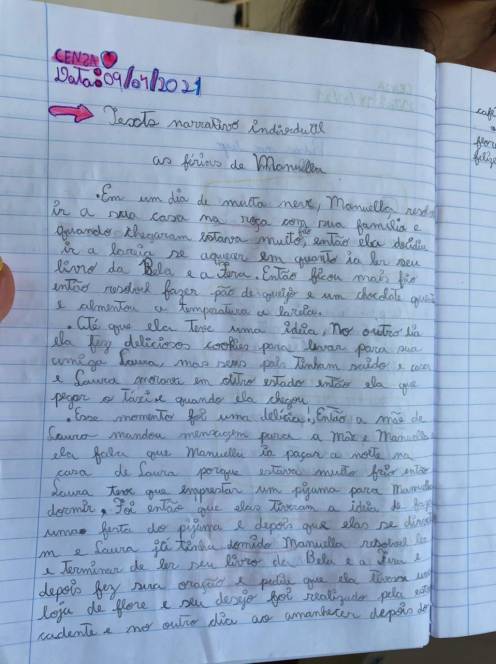 CENSA
Data: 09/07/2021
Texto narrativo individuall
as férias de Manuella
.Em um dia de muita neve, Manuella resol
ir a sua casa na roça com sua familia e
quando chegaram estava muito frio, então ela decidiu
ir a lareia se aquecer em quanto ia ler seu
livro da Bela e a Fera. Então ficou mais frio
então resolveu fazer pão de queijo e um chocolate que
e almentou a temperatura a lareia.
. Até que ela teve uma ideia, no outro dia
ela fez deliciosos cookies para levar para sua
amiga Laura, mas seus pais tinham saido e
e Laura morava em outro estado então ela que
pegar o táxi e quando ela chegou
. Esse momento foi uma delicia! Então a mãe de
Laura mandou mensagem para a mãe e Manuella
ela falou que Manuella ia pasar a noite na
casa de Laura porque estava muito frio então
Laura teve que emprestar um pijama para Manuella
dormir. Foi então que elas tiveram a ideia de faze
uma festa do pijama e depois que elas se diverti
m e Laura já tinha domido Manuella resolveu le
e terminar de ler seu livro da Bela e a Fera e
depois fez sua oração e pediu que ela tivesse uma
loja de flore e seu desejo foi realizado pela estre
cadente e no outro dia ao amanhecer depois do
café
flore
feliz